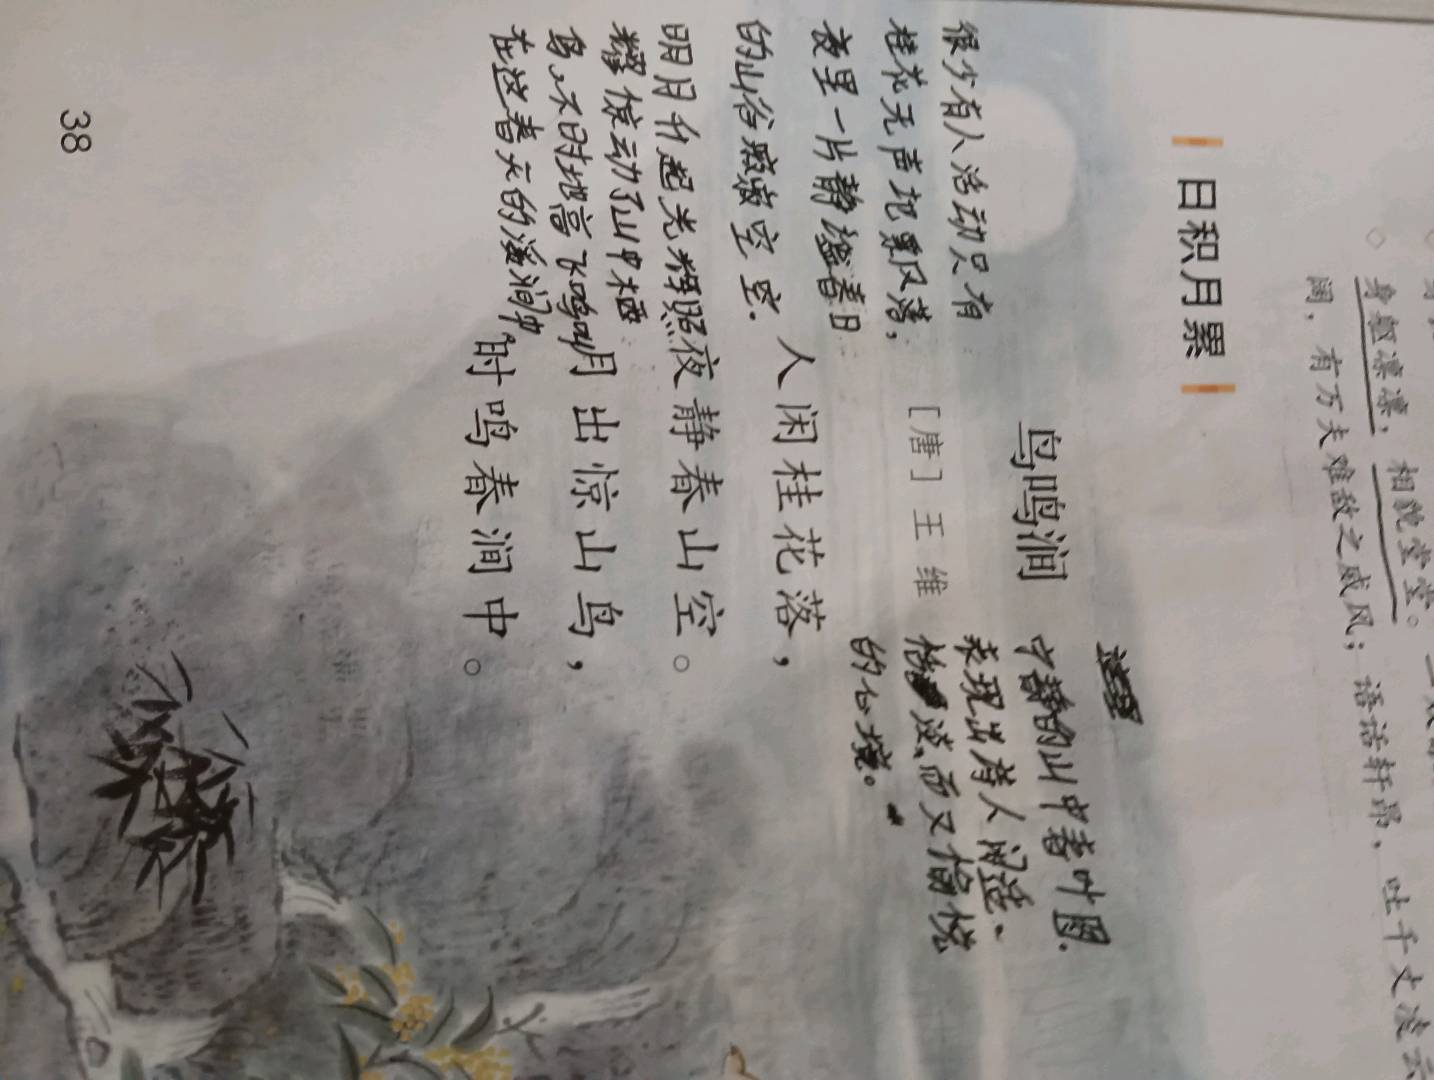 身躯凛凛，相貌堂堂。
阔，有万夫难敌之威风；语话轩昂，吐千丈凌云
日积月累
鸟鸣涧
[唐] 王维
人闲桂花落，
夜静春山空。
月出惊山鸟，
时鸣春涧中。
很少有人活动只有
桂花无声地飘落，
夜里一片静谧春日
的山谷寂寂空空.
明月升起光辉照
耀惊动了山中栖
鸟、不时地高飞鸣叫
在这春天的溪涧中。
宁静的山中春叶图.
表现出诗人闲适、
恬淡而又愉悦
的心境。
38